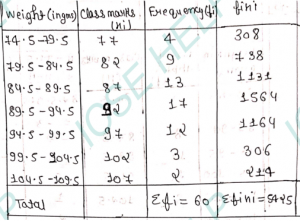 Weight (in gms) Class marks (xi) Frequency (fi) fixi
74.5-79.5 77 4 308
79.5-84.5 82 9 738
84.5-89.5 87 13 1131
89.5-94.5 92 17 1564
94.5-99.5 97 12 1164
99.5-104.5 102 3 306
104.5-109.5 107 2 214
Total Σfi = 60 Σfixi = 5425